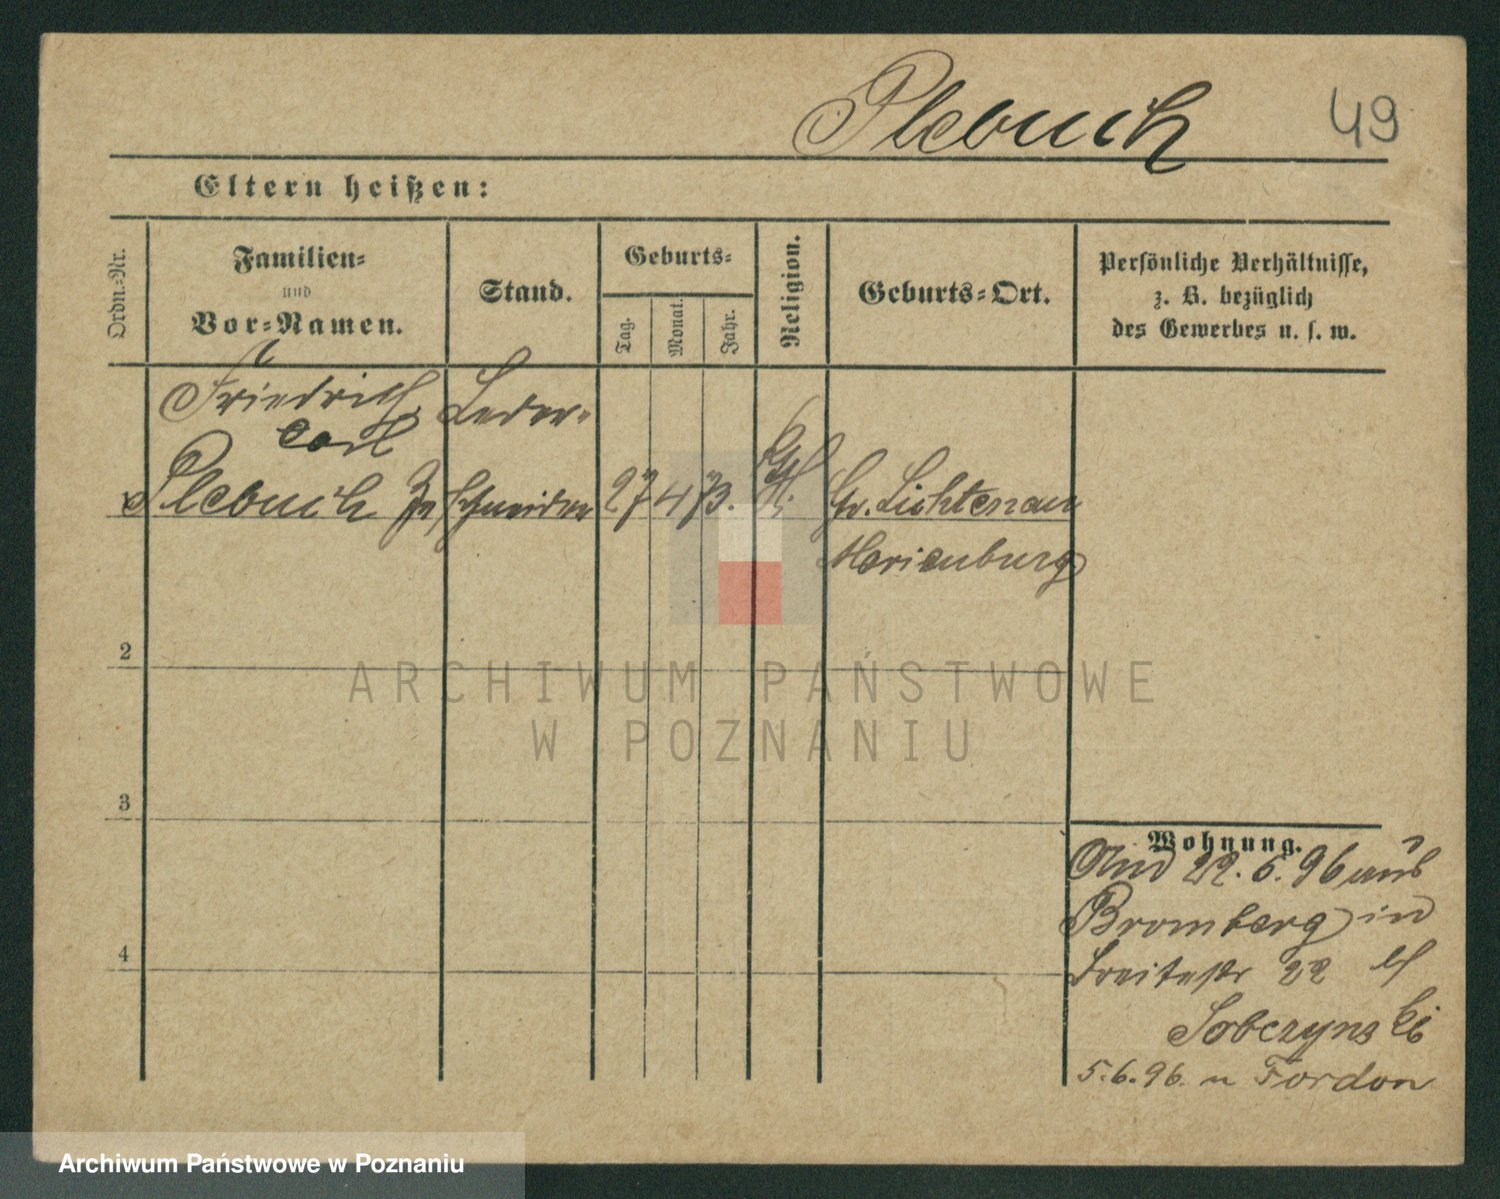 Plebuch
49
Eltern heißen:
Ordn.-Nr.
Familien-
und
Vor-Namen.
Stand.
Geburts-
Tag.
Monat.
Jahr.
Religion.
Geburts-Ort.
Persönliche Verhältnisse,
z. B. bezüglich
des Gewerbes u. s. w.
Friedrich
Carl
Plebuch
Leder-
schneider
27 4 73.
Gr. Lichtenau
Marienburg
2
3
4
Wohnung.
22. 5. 96 aus
Bromberg in
Breitestr 22
Sobczynski
5.6.96. n Fordon
ARCHIWUM PAŃSTWOWE
W POZNANIU
Archiwum Państwowe w Poznaniu